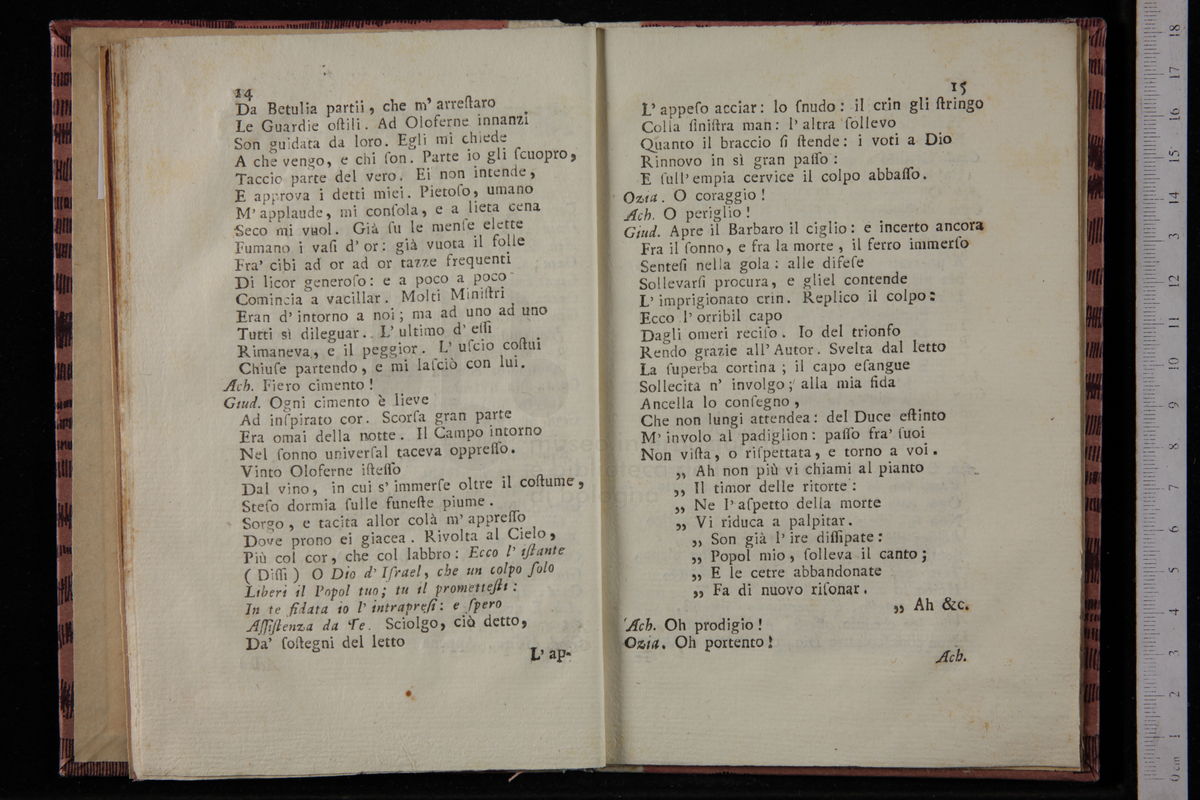 14
Da Betulia partii, che m' arreſtaro
Le Guardie oſtili. Ad Oloferne innanzi
Son guidata da loro. Egli mi chiede
A che vengo, e chi ſon. Parte io gli ſcuopro,
Taccio parte del vero. Ei non intende,
E approva i detti miei. Pietoſo, umano
M' applaude, mi conſola, e a lieta cena
Seco mi vuol. Già ſu le menſe elette
Fumano i vaſi d' or: già vuota il folle
Fra' cibi ad or ad or tazze frequenti
Di licor generoſo: e a poco a poco
Comincia a vacillar. Molti Miniſtri
Eran d' intorno a noi; ma ad uno ad uno
Tutti sì dileguar. L' ultimo d' eſſi
Rimaneva, e il peggior. L' uſcio coſtui
Chiuſe partendo, e mi laſciò con lui.
Ach. Fiero cimento!
Giud. Ogni cimento è lieve
Ad inſpirato cor. Scorſa gran parte
Era omai della notte. Il Campo intorno
Nel ſonno univerſal taceva oppreſſo.
Vinto Oloferne iſteſſo
Dal vino, in cui s' immerſe oltre il coſtume,
Steſo dormia ſulle funeſte piume.
Sorgo, e tacita allor colà m' appreſſo
Dove prono ei giacea. Rivolta al Cielo,
Più col cor, che col labbro: Ecco l' iſtante
(Diſſi) O Dio d' Iſrael, che un colpo ſolo
Liberi il Popol tuo; tu il prometteſti:
In te fidata io l' intrapreſi: e ſpero
Aſſiſtenza da Te. Sciolgo, ciò detto,
Da' ſoſtegni del letto
L' ap-
15
L' appeſo acciar: lo ſnudo: il crin gli ſtringo
Colla ſiniſtra man: l' altra ſollevo
Quanto il braccio ſi ſtende: i voti a Dio
Rinnovo in sì gran paſſo:
E ſull' empia cervice il colpo abbaſſo.
Ozia. O coraggio!
Ach. O periglio!
Giud. Apre il Barbaro il ciglio: e incerto ancora
Fra il ſonno, e fra la morte, il ferro immerſo
Senteſi nella gola: alle difeſe
Sollevarſi procura, e gliel contende
L' imprigionato crin. Replico il colpo:
Ecco l' orribil capo
Dagli omeri reciſo. Io del trionfo
Rendo grazie all' Autor. Svelta dal letto
La ſuperba cortina; il capo eſangue
Sollecita n' involgo; alla mia fida
Ancella lo conſegno,
Che non lungi attendea: del Duce eſtinto
M' involo al padiglion: paſſo fra' ſuoi
Non viſta, o riſpettata, e torno a voi.
„ Ah non più vi chiami al pianto
„ Il timor delle ritorte:
„ Ne l' aſpetto della morte
„ Vi riduca a palpitar.
„ Son già l' ire diſſipate:
„ Popol mio, ſolleva il canto;
„ E le cetre abbandonate
„ Fa di nuovo riſonar.
„ Ah &c.
Ach. Oh prodigio!
Ozia. Oh portento!
Ach.